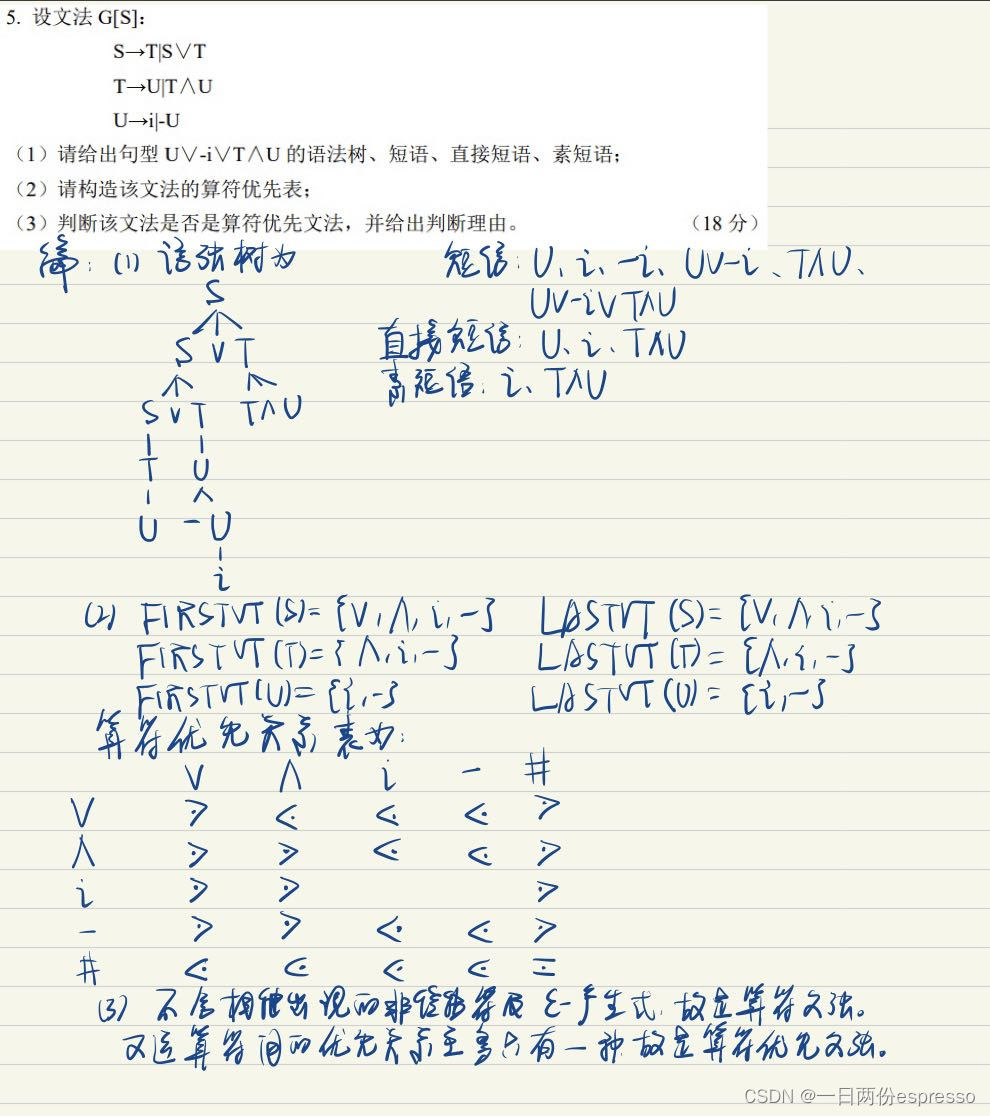 5. 设文法 G[S]:
S→T|S∨T
T→U|T∧U
U→i|-U
（1）请给出句型 U∨-i∨T∧U 的语法树、短语、直接短语、素短语;
（2）请构造该文法的算符优先表;
（3）判断该文法是否是算符优先文法，并给出判断理由。 （18 分）
解: (1) 语法树为
短语: U、i、-i、U∨-i、T∧U、
U∨-i∨T∧U
直接短语: U、i、T∧U
素短语: i、T∧U
S
S ∨ T
S ∨ T T∧U
T U
U - U
i
(2) FIRSTVT(S)={∨,∧,i,-} LASTVT(S)={∨,∧,i,-}
FIRSTVT(T)={∧,i,-} LASTVT(T)={∧,i,-}
FIRSTVT(U)={i,-} LASTVT(U)={i,-}
算符优先关系表为:
∨ ∧ i - #
∨ ⋗ ⋖ ⋖ ⋖ ⋗
∧ ⋗ ⋗ ⋖ ⋖ ⋗
i ⋗ ⋗ ⋗
- ⋗ ⋗ ⋖ ⋖ ⋗
# ⋖ ⋖ ⋖ ⋖ =
(3) 不含相继出现的非终结符及ε-产生式, 故是算符文法。
又运算符间的优先关系至多只有一种故是算符优先文法。
CSDN @一日两份espresso